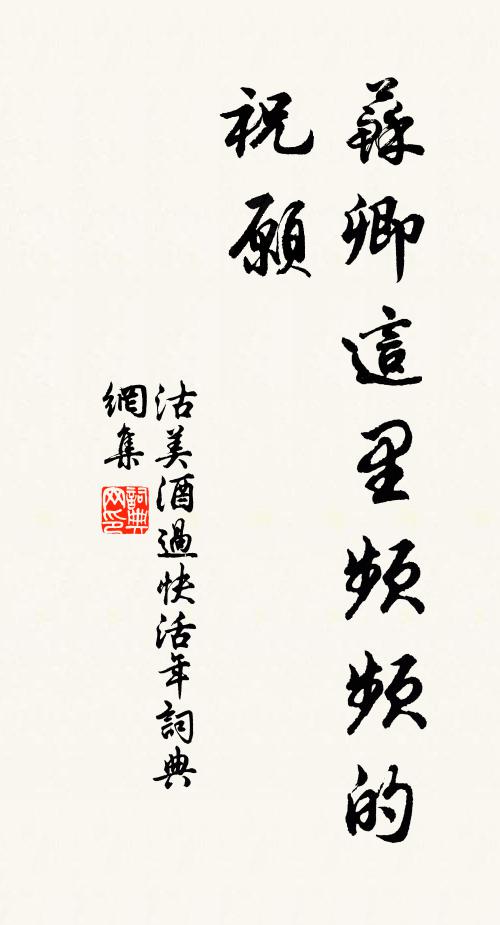 蘇卿這里頻頻的
祝願
沽美酒過快活年詞典
網集
詞典
网印